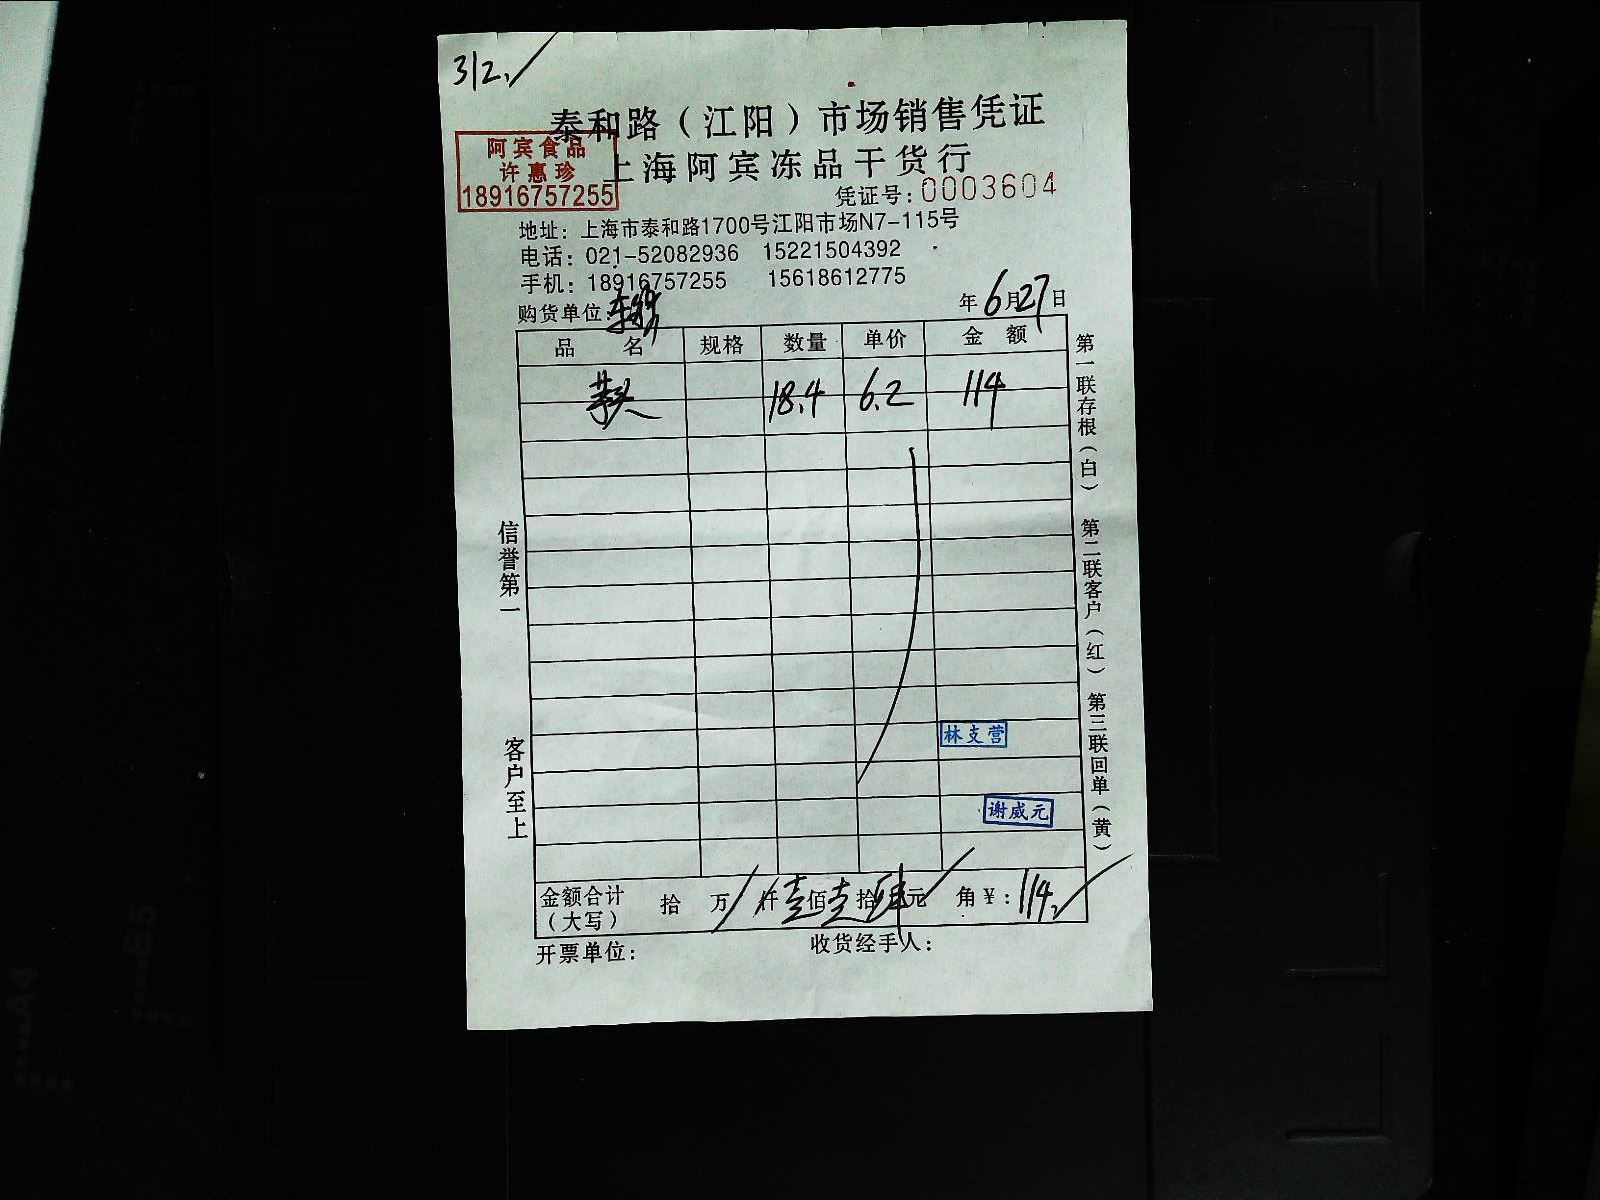 312.
泰和路（江阳）市场销售凭证
上海阿宾冻品干货行
阿宾食品
许惠珍
18916757255
凭证号：0003604
地址：上海市泰和路1700号江阳市场N7-115号
电话：021-52082936 15221504392
手机：18916757255 15618612775
购货单位：
年6月27日
品名 规格 数量 单价 金额
18.4 6.2 114
林支营
谢威元
金额合计（大写） 拾 万 仟壹佰壹拾肆元 角 ¥：114.
开票单位： 收货经手人：
信誉第一
客户至上
第一联存根（白）
第二联客户（红）
第三联回单（黄）
A4
B5